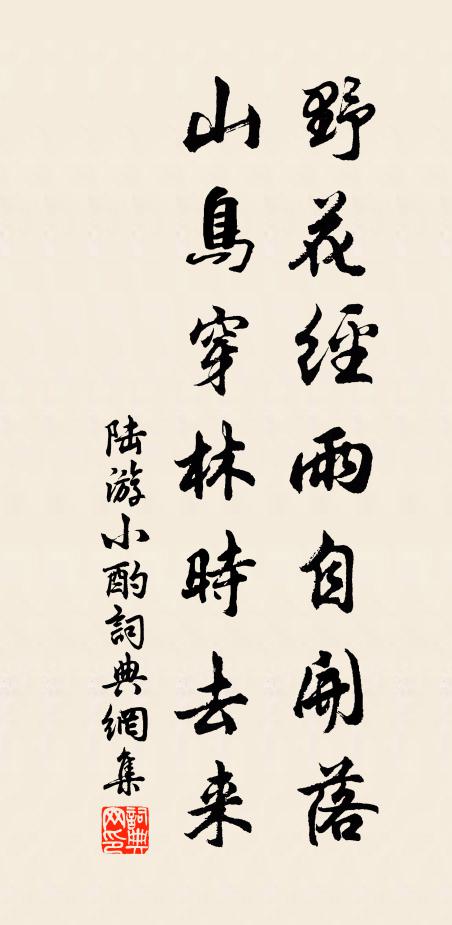 野花經雨自開落
山鳥穿林時去来
陆游小酌詞典網集
詞典网印